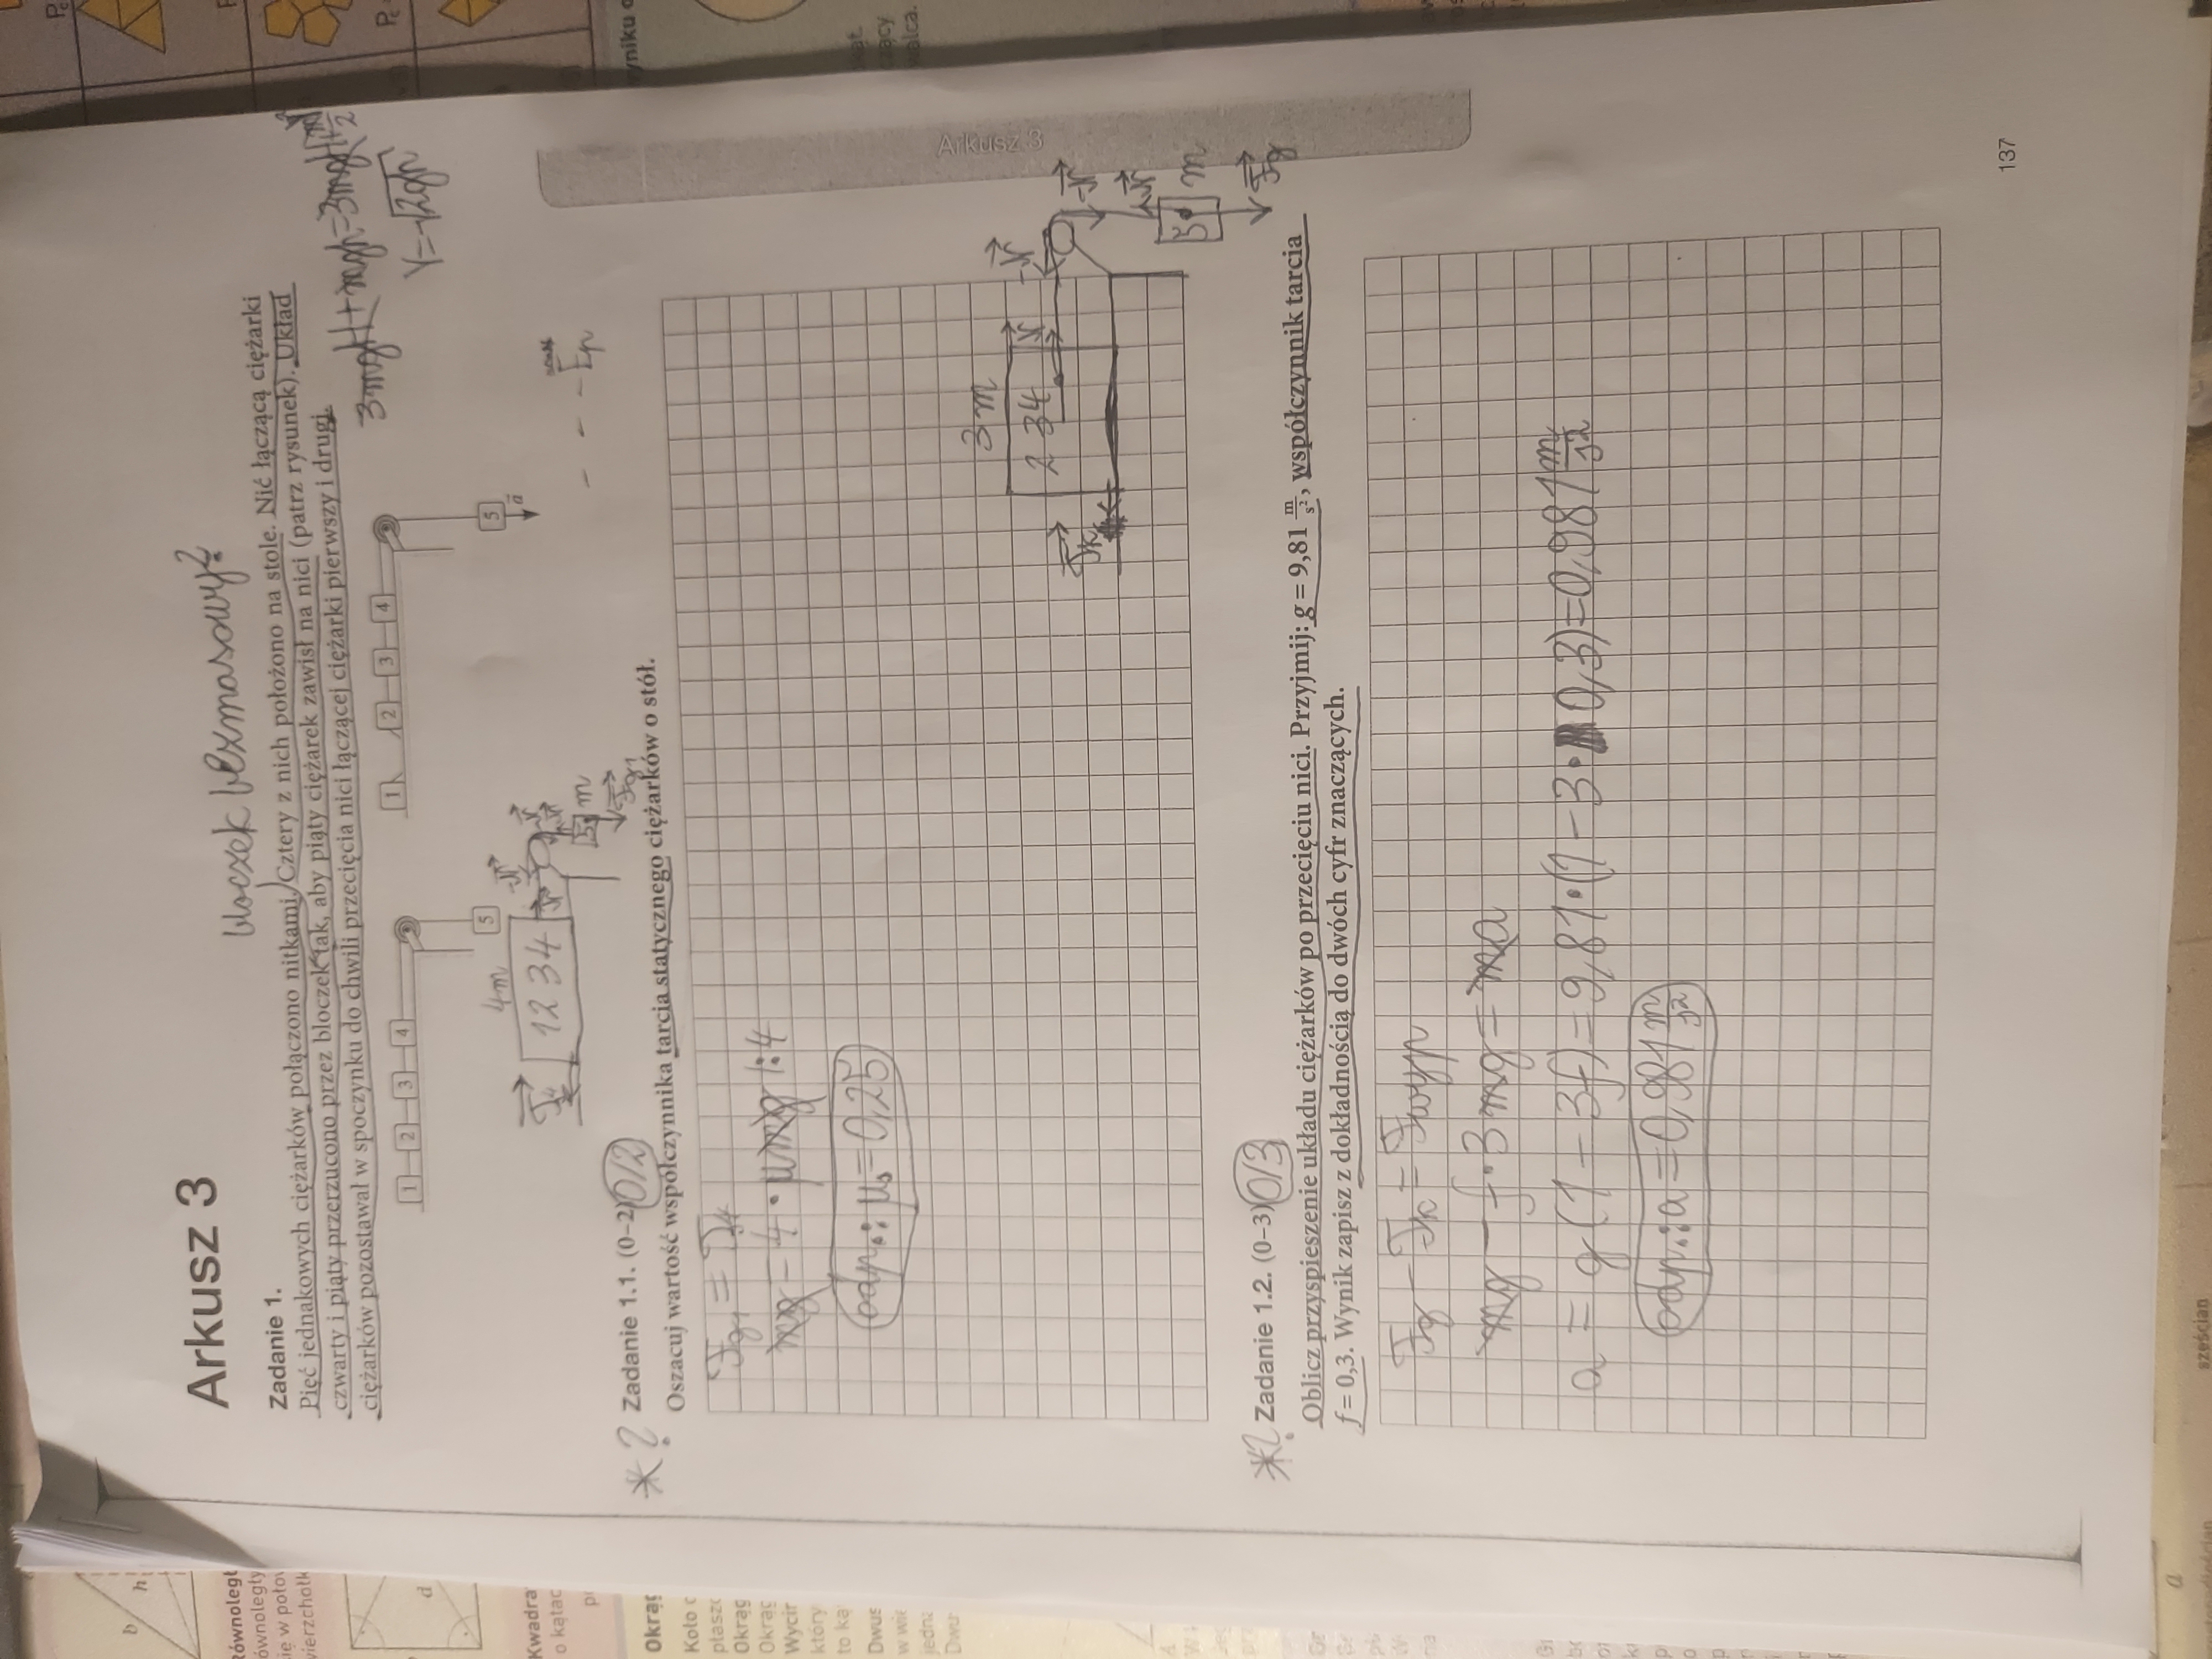 Arkusz 3
bloczek bezmasowy?
Zadanie 1.
Pięć jednakowych ciężarków połączono nitkami. Cztery z nich położono na stole. Nić łączącą ciężarki
czwarty i piąty przerzucono przez bloczek tak, aby piąty ciężarek zawisł na nici (patrz rysunek). Układ
ciężarków pozostawał w spoczynku do chwili przecięcia nici łączącej ciężarki pierwszy i drugi.
1 2 3 4
5
1 2 3 4
5
a
V=√2gh
4m
1 2 3 4
5
m
* ? Zadanie 1.1. (0–2) 0/2
Oszacuj wartość współczynnika tarcia statycznego ciężarków o stół.
mg = 4 · μmg /:4
odp.: μs = 0,25
3m
2 3 4
5
m
Arkusz 3
*? Zadanie 1.2. (0–3) 0/3
Oblicz przyspieszenie układu ciężarków po przecięciu nici. Przyjmij: g = 9,81 m/s², współczynnik tarcia
f = 0,3. Wynik zapisz z dokładnością do dwóch cyfr znaczących.
Fg − Fk = Fwyp
mg − f · 3mg = ma
a = g(1 − 3f) = 9,81 · (1 − 3 · 0,3) = 0,981 m/s²
odp.: a = 0,981 m/s²
137
b
h
d
Kwadra
o kątac
Okrąg
Okrąg
Wycin
który
to ką
Dwus
jedn
sześcian
a